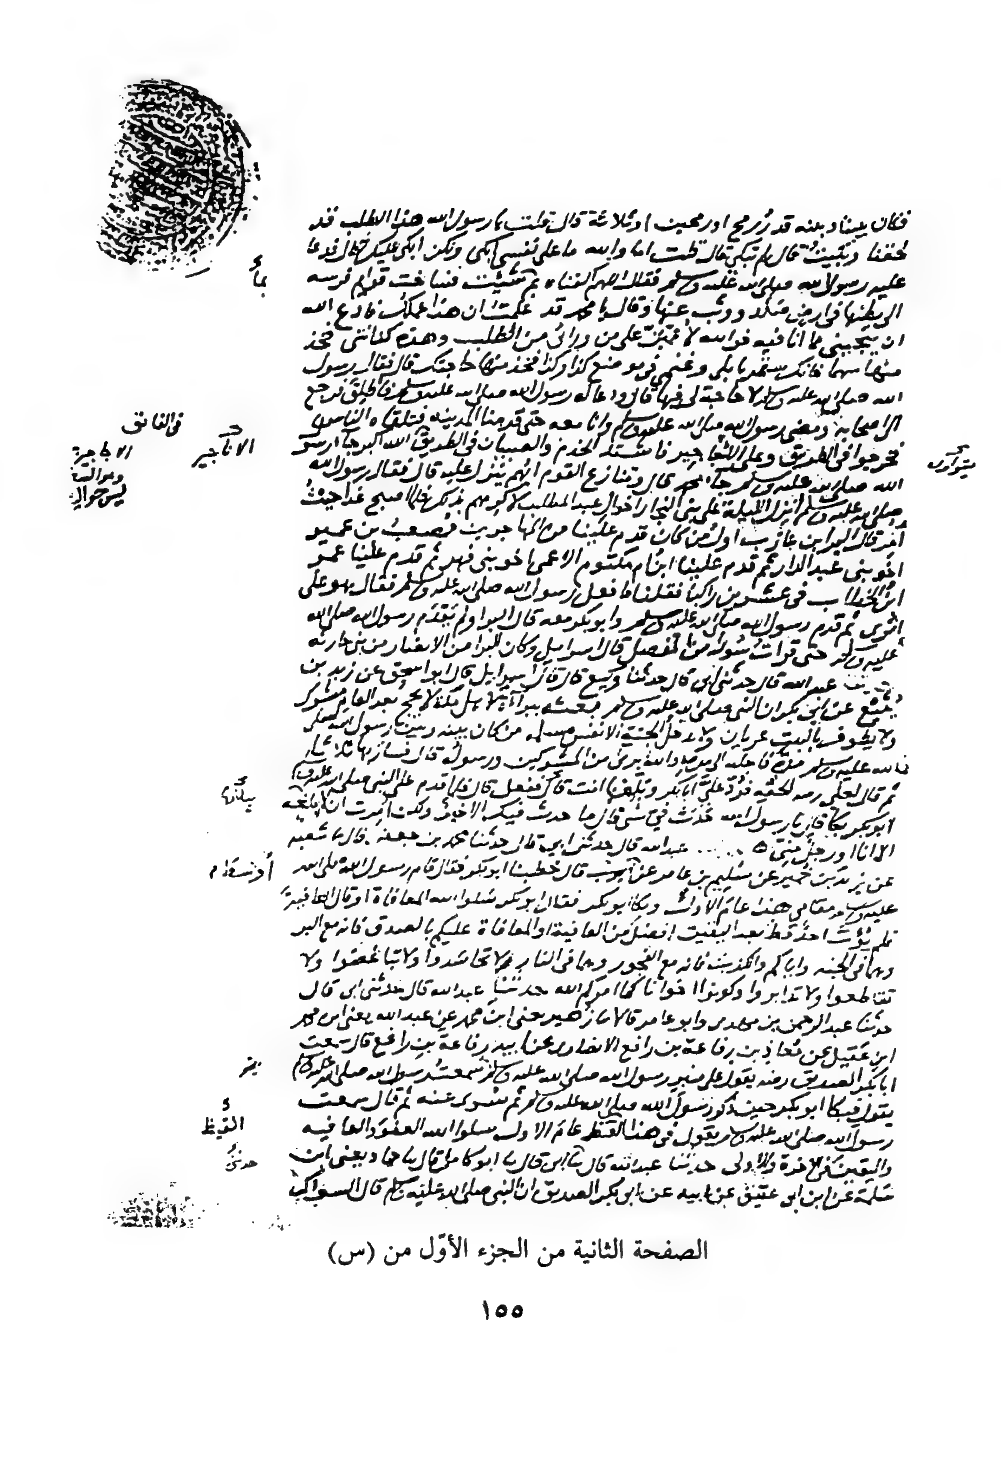 فكان بيننا وبينه قدر رمح او رمحين او ثلاثة قال قلت يا رسول الله هذا الطلب قد
لحقنا وبكيت قال لم تبكي قال قلت اما والله ما على نفسي ابكي ولكن ابكي عليك قال فدعا
عليه رسول الله صلى الله عليه وسلم فقال اللهم اكفناه بم شئت فساخت قوائم فرسه
الى بطنها في ارض صلد ووثب عنها وقال يا محمد قد علمت ان هذا عملك فادع الله
ان ينجيني مما انا فيه فوالله لأعمين على من ورائي من الطلب وهذه كنانتي فخذ
منها سهما فانك ستمر بابلي وغنمي في موضع كذا وكذا فخذ منها حاجتك قال فقال رسول
الله صلى الله عليه وسلم لا حاجة لي فيها قال ودعا له رسول الله صلى الله عليه وسلم فاطلق فرجع
الى اصحابه ومضى رسول الله صلى الله عليه وسلم وانا معه حتى قدمنا المدينه فتلقاه الناس
فخرجوا في الطريق وعلى الاجاجير فاشتد الخدم والصبيان في الطريق الله اكبر جآ رسول
الله صلى الله عليه وسلم جآ محمد قال وتنازع القوم ايهم ينزل عليه قال فقال رسول الله
صلى الله عليه وسلم انزل الليلة على بني النجار اخوال عبد المطلب لاكرمهم بذلك فلما اصبح غدا حيث
امر قال البرا بن عازب اول من كان قدم علينا من المهاجرين مصعب بن عمير
اخو بني عبد الدار ثم قدم علينا ابن ام مكتوم الاعمى اخو بني فهر ثم قدم علينا عمر
ابن الخطاب في عشرين راكبا فقلنا ما فعل رسول الله صلى الله عليه وسلم فقال هو على
اثري ثم قدم رسول الله صلى الله عليه وسلم وابو بكر معه قال البرا ولم يقدم رسول الله صلى الله
عليه وسلم حتى قرات سورا من المفصل قال اسرائيل وكان البرا من الانصار من بني حارثه
عبد الله قال حدثني ابي قال حدثنا وكيع قال قال اسرايل قال ابو اسحق عن زيد بن
يثيع عن ابي بكر ان النبي صلى الله عليه وسلم بعثه ببرآة لاهل مكة لا يحج بعد العام مشرك
ولا يطوف بالبيت عريان ولا يدخل الجنة الا نفس مسلمه من كان بينه وبين رسول الله صلى
الله عليه وسلم مدة فاجله الى مدته والله بري من المشركين ورسوله قال فسار بها ثلاثا
ثم قال لعلي رضه الحقه فرد علي ابا بكر وبلغها انت قال ففعل قال فلما قدم على النبي صلى الله عليه وسلم
ابو بكر بكا قال يا رسول الله حدث في شي قال ما حدث فيك الا خير ولكن امرت ان لا يبلغه
الا انا او رجل مني عبد الله قال حدثني ابي قال حدثنا محمد بن جعفر قال ثنا شعبه
عن يزيد بن خمير عن سليم بن عامر عن اوسط قال خطبنا ابو بكر فقال قام رسول الله صلى الله
عليه وسلم مقامي هذا عام الاول وبكا ابو بكر فقال ابو بكر سلوا الله المعافاة او قال العافية
فلم يؤت احد قط بعد اليقين افضل من العافية او المعافاة عليكم بالصدق فانه مع البر
وهما في الجنه واياكم والكذب فانه مع الفجور وهما في النار ولا تحاسدوا ولا تباغضوا ولا
تقاطعوا ولا تدابروا وكونوا اخوانا كما امركم الله حدثنا عبد الله قال حدثني ابي قال
حدثنا عبد الرحمن بن مهدي وابو عامر قالا ثنا زهير يعني ابن محمد عن عبد الله يعني ابن محمد
ابن عقيل عن معاذ بن رفاعة بن رافع الانصاري عن ابيه رفاعة بن رافع قال سمعت
ابا بكر الصديق رضه يقول على منبر رسول الله صلى الله عليه وسلم سمعت رسول الله صلى الله عليه وسلم
يقول فبكا ابو بكر حين ذكر رسول الله صلى الله عليه وسلم ثم سري عنه ثم قال سمعت
رسول الله صلى الله عليه وسلم يقول في هذا القيظ عام الاول سلوا الله العفو والعافيه
واليقين في الاخرة والاولى حدثنا عبد الله قال ثنا ابي قال ثنا ابو كامل قال ثنا حماد يعني ابن
سلمة عن ابن ابي عتيق عن ابيه عن ابي بكر الصديق ان النبي صلى الله عليه وسلم قال السواك
بما
في الفائق
الاناجير
القيظ
حدثني
الصفحة الثانية من الجزء الأوّل من (س)
١٥٥